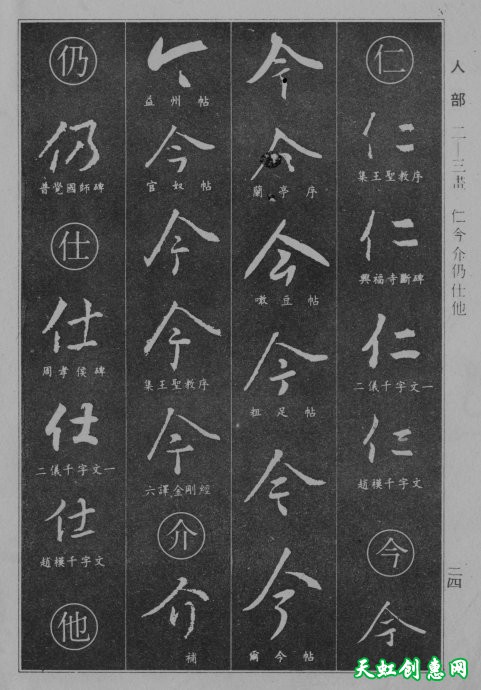 人部 二—三畫 仁今介仍仕他
二四
仁
仁
集王聖敎序
仁
興福寺斷碑
仁
二儀千字文一
仁
趙模千字文
今
今
今
今
蘭亭序
今
噉豆帖
今
粗足帖
今
今
爾今帖
今
益州帖
今
官奴帖
今
今
集王聖敎序
今
六譯金剛經
介
介
補
仍
仍
普覺國師碑
仕
仕
周孝侯碑
仕
二儀千字文一
仕
趙模千字文
他
天虹创意网